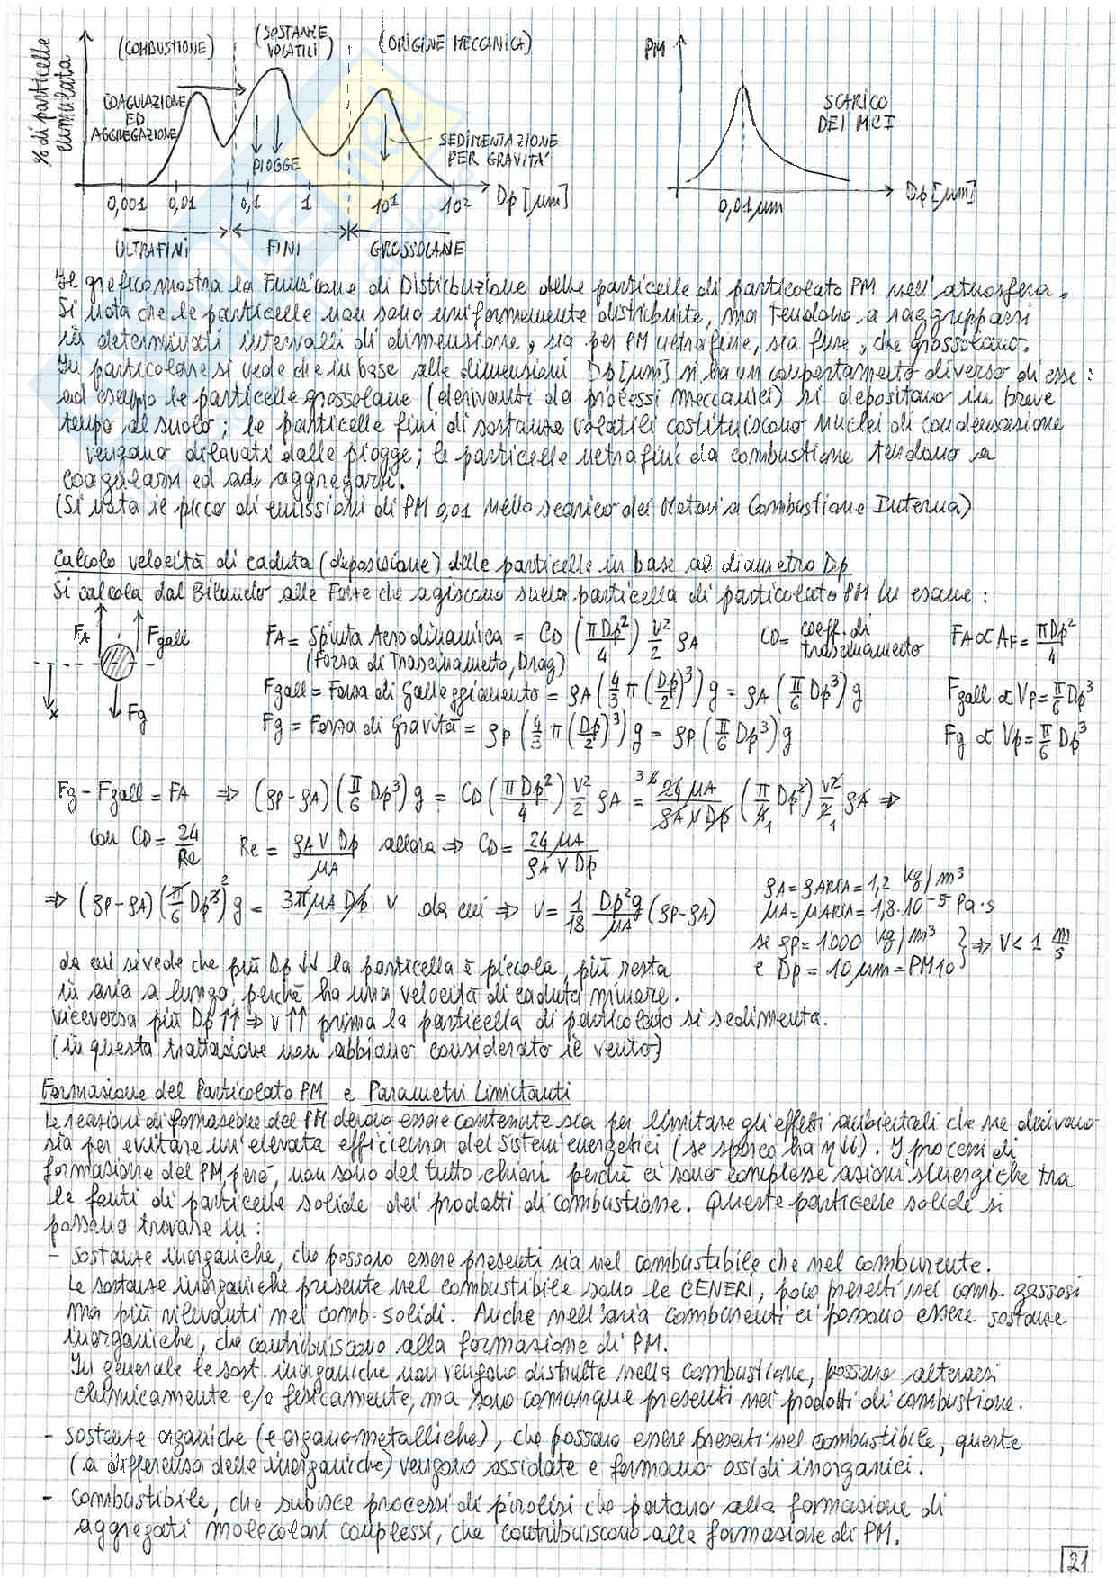 % di particelle cumulata
(COMBUSTIONE)
(SOSTANZE VOLATILI)
(ORIGINE MECCANICA)
COAGULAZIONE ED AGGREGAZIONE
PIOGGE
SEDIMENTAZIONE PER GRAVITA'
0,001 0,01 0,1 1 10¹ 10² Dp [μm]
ULTRAFINI FINI GROSSOLANE
PM
SCARICO DEI MCI
0,01 μm
Dp [μm]
Il grafico mostra la Funzione di Distribuzione delle particelle di particolato PM nell'atmosfera.
Si nota che le particelle non sono uniformemente distribuite, ma tendono a raggrupparsi
in determinati intervalli di dimensione, sia per PM ultrafine, sia fine, che grossolano.
In particolare si vede che in base alle dimensioni Dp [μm] si ha un comportamento diverso di esse:
ad esempio le particelle grossolane (derivanti da processi meccanici) si depositano in breve
tempo al suolo; le particelle fini di sostanze volatili costituiscono nuclei di condensazione
vengono dilavati dalle piogge; le particelle ultrafini da combustione tendono a
coagularsi ed ad aggregarsi.
(Si nota il picco di emissioni di PM 0,01 nello scarico dei Motori a Combustione Interna)
Calcolo velocità di caduta (deposizione) delle particelle in base al diametro Dp
Si calcola dal Bilancio alle Forze che agiscono sulla particella di particolato PM in esame:
FA Fgall x Fg
FA = Spinta Aerodinamica = CD (πDp²/4) v²/2 ρA CD = coeff. di trascinamento FA ∝ AF = πDp²/4
(Forza di Trascinamento, Drag)
Fgall = Forza di Galleggiamento = ρA (4/3 π (Dp/2)³) g = ρA (π/6 Dp³) g Fgall ∝ Vp = π/6 Dp³
Fg = Forza di Gravità = ρp (4/3 π (Dp/2)³) g = ρp (π/6 Dp³) g Fg ∝ Vp = π/6 Dp³
Fg - Fgall = FA ⇒ (ρp - ρA) (π/6 Dp³) g = CD (πDp²/4) v²/2 ρA = 24 μA/(ρA v Dp) (π/4 Dp²) v²/2 ρA ⇒
con CD = 24/Re Re = ρA v Dp/μA allora ⇒ CD = 24 μA/(ρA v Dp)
⇒ (ρp - ρA) (π/6 Dp³) g = 3π μA Dp v da cui ⇒ v = 1/18 Dp² g/μA (ρp - ρA)
ρA = ρARIA = 1,2 kg/m³
μA = μARIA = 1,8·10⁻⁵ Pa·s
se ρp = 1000 kg/m³
e Dp = 10 μm = PM10 } ⇒ v < 1 m/s
da cui si vede che più Dp ↓↓ la particella è piccola, più resta
in aria a lungo, perchè ha una velocità di caduta minore.
viceversa più Dp ↑↑ ⇒ v ↑↑ prima la particella di particolato si sedimenta.
(in questa trattazione non abbiamo considerato il vento)
Formazione del Particolato PM e Parametri Limitanti
Le reazioni di formazione del PM devono essere contenute sia per limitare gli effetti ambientali che ne derivano
sia per evitare un'elevata efficienza dei Sistemi energetici (se sporco ha η ↓↓). I processi di
formazione del PM, però, non sono del tutto chiari perchè ci sono complesse azioni sinergiche tra
le fonti di particelle solide dei prodotti di combustione. Queste particelle solide si
possono trovare in:
- sostanze inorganiche, che possono essere presenti sia nel combustibile che nel comburente.
Le sostanze inorganiche presente nel combustibile sono le CENERI, poco presenti nei comb. gassosi
ma più rilevanti nei comb. solidi. Anche nell'aria comburenti ci possono essere sostanze
inorganiche, che contribuiscono alla formazione di PM.
In generale le sost. inorganiche non vengono distrutte nella combustione, possono alterarsi
chimicamente e/o fisicamente, ma sono comunque presenti nei prodotti di combustione.
- sostanze organiche (e organo-metalliche), che possono essere presenti nel combustibile, queste
(a differenza delle inorganiche) vengono ossidate e formano ossidi inorganici.
- combustibile, che subisce processi di pirolisi che portano alla formazione di
aggregati molecolari complessi, che contribuiscono alla formazione di PM.
21